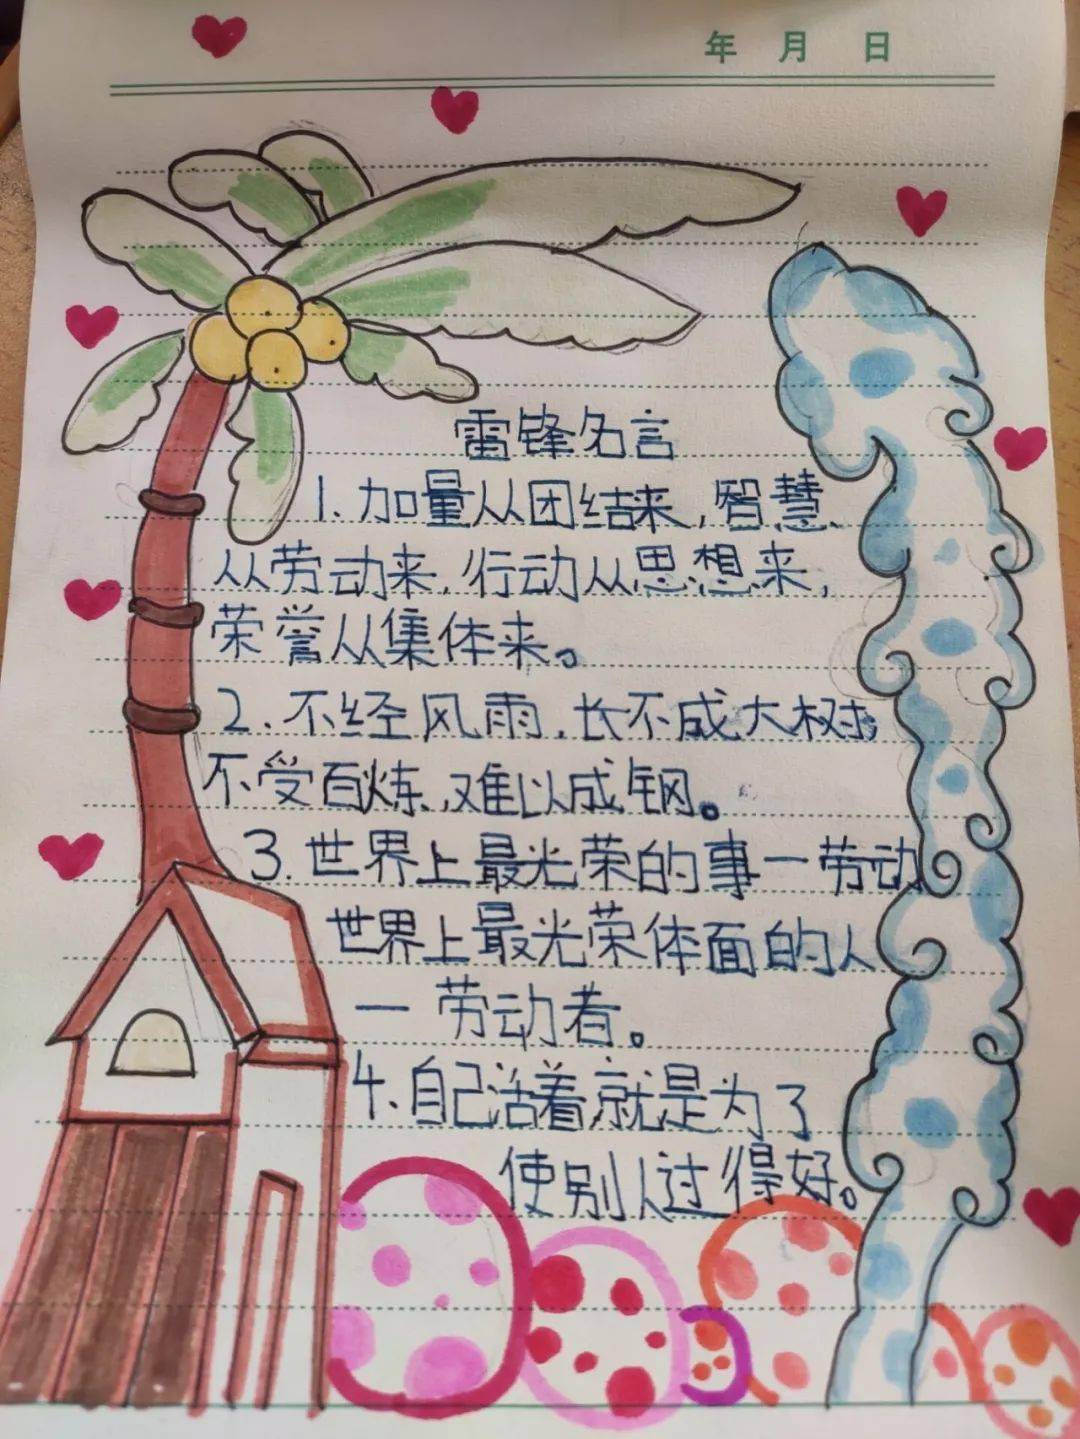 年 月 日
雷锋名言
1.加量从团结来,智慧
从劳动来,行动从思想来,
荣誉从集体来。
2.不经风雨,长不成大树;
不受百炼,难以成钢。
3.世界上最光荣的事一劳动
世界上最光荣体面的人
一劳动者。
4.自己活着,就是为了
使别人过得好。